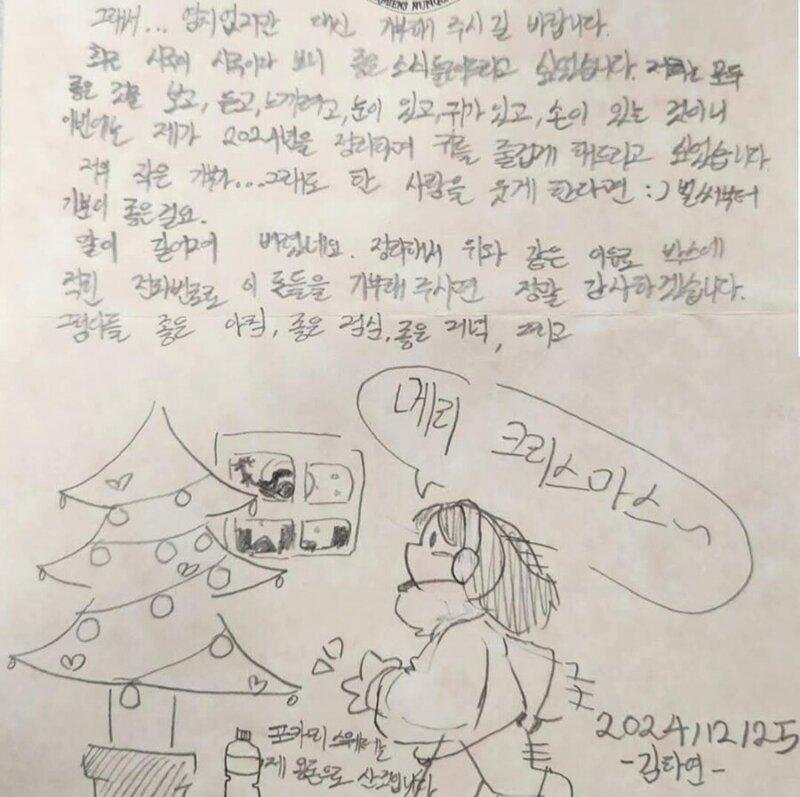 그래서... 염치없지만 대신 기부해 주시길 바랍니다.
최근 시국이 시국이다 보니 좋은 소식 들려드리고 싶었습니다. 저희는 모두
좋은 것을 보고, 듣고, 느끼려고, 눈이 있고, 귀가 있고, 손이 있는 것이니
이번에는 제가 2024년을 정리하며 귀를 즐겁게 해드리고 싶었습니다.
저의 작은 기부가... 그래도 한 사람을 웃게 한다면 :) 벌써부터
기분이 좋은걸요.
말이 길어져 버렸네요. 정리해서 위와 같은 이유로 박스에
적힌 전화번호로 이 돈들을 기부해 주시면 정말 감사하겠습니다.
그럼 다들 좋은 아침, 좋은 점심, 좋은 저녁, 그리고
메리 크리스마스~
포카리 스웨트는
제 용돈으로 산겁니다
2024/12/25
-김타연-